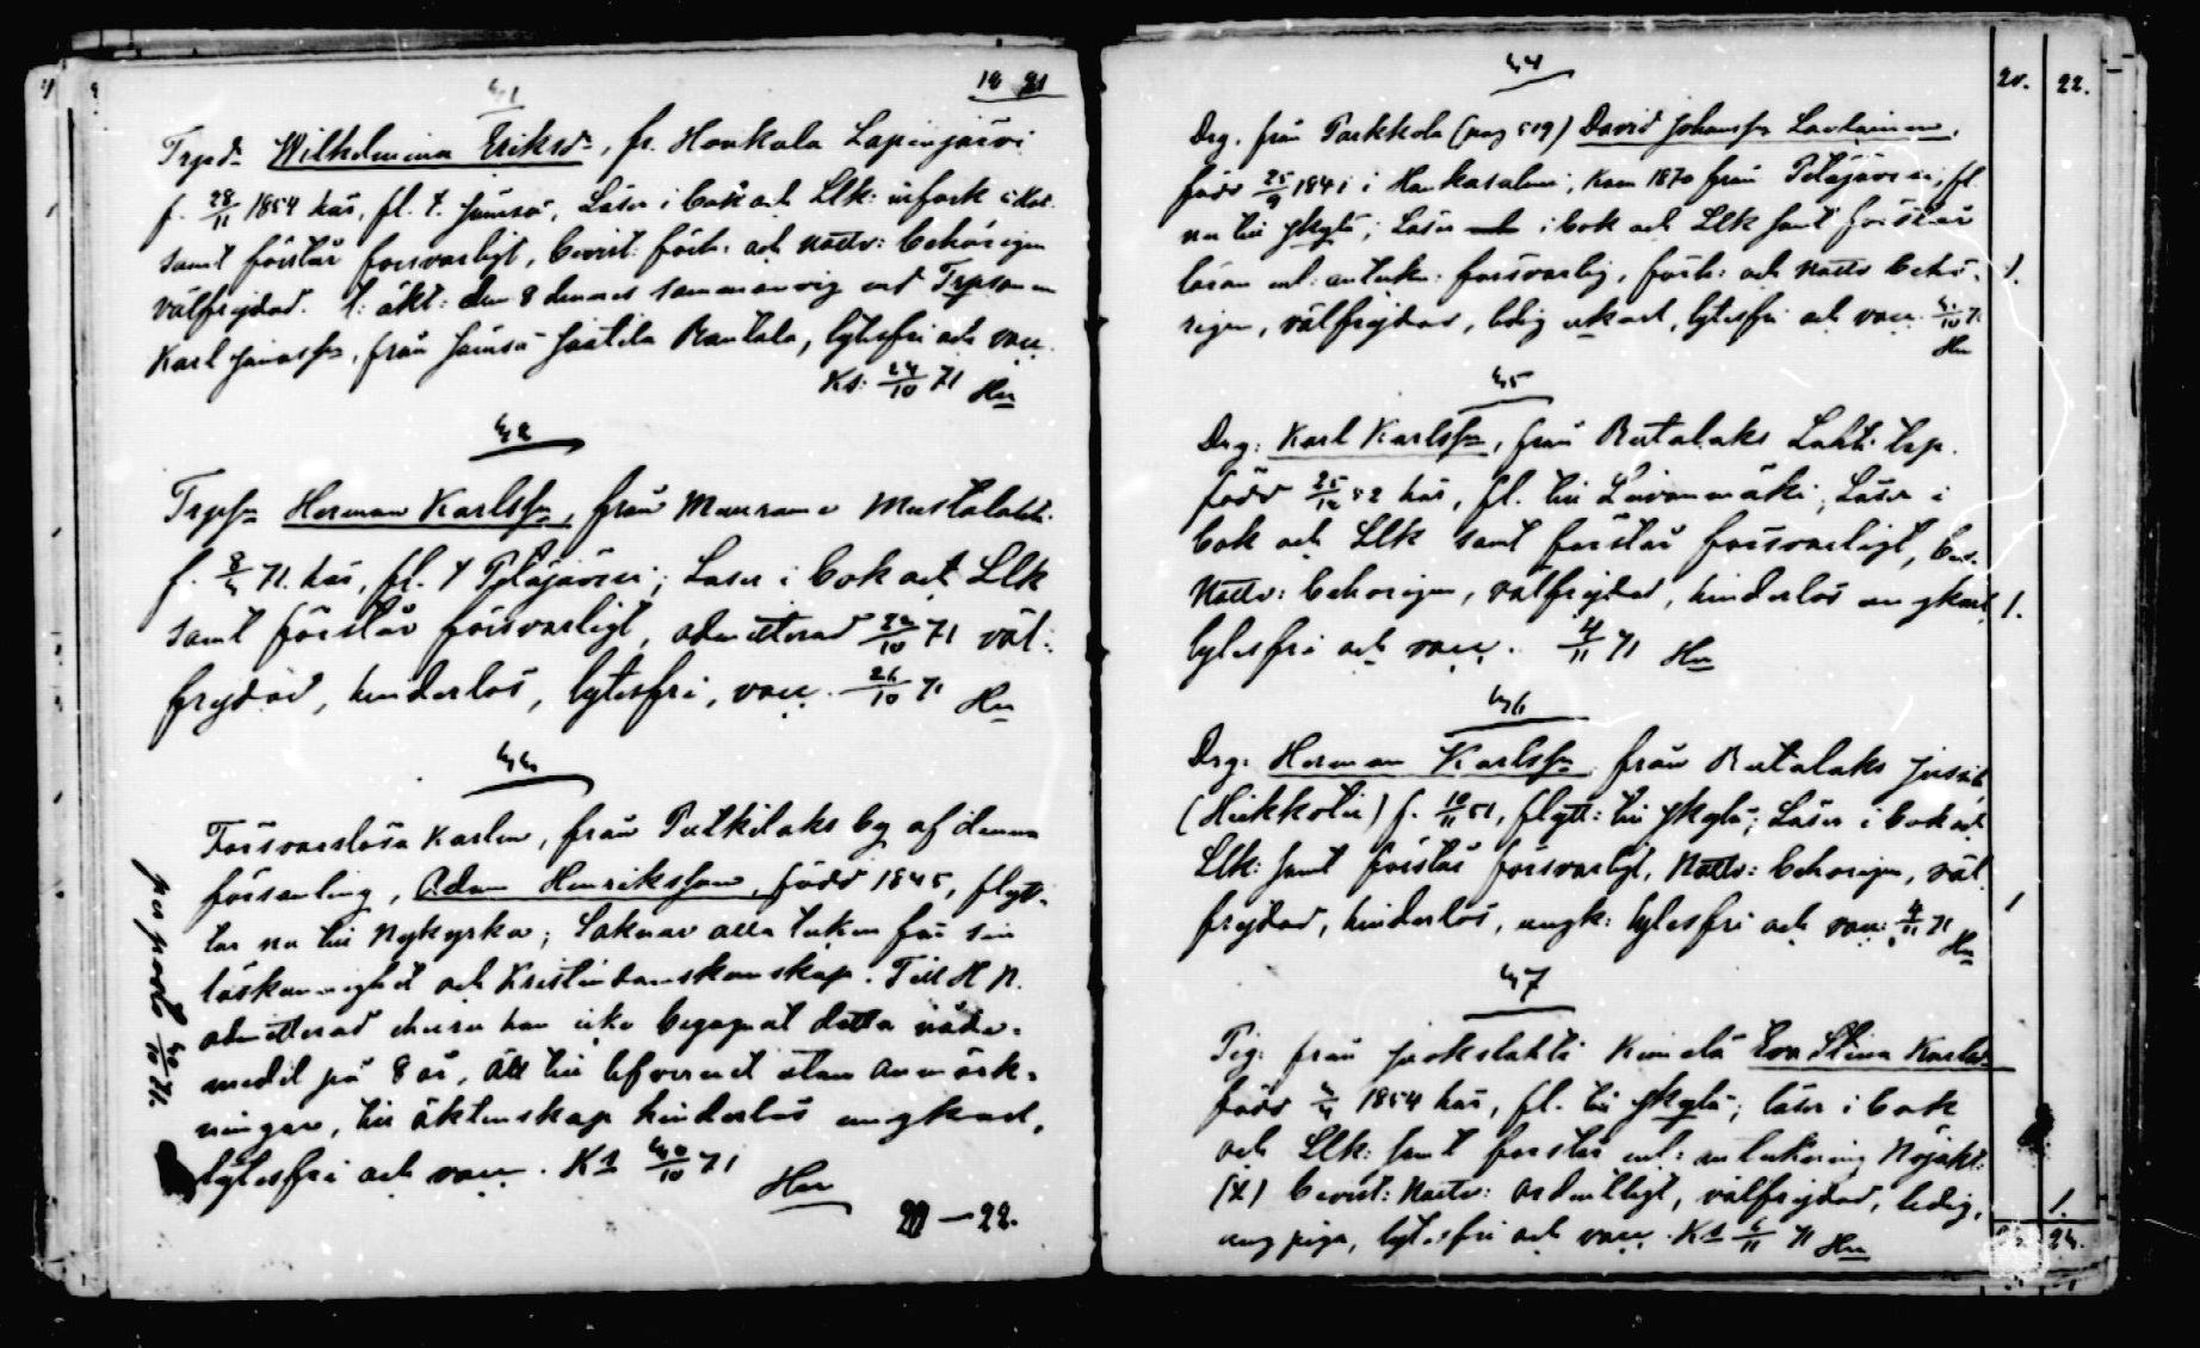 31
19 21
Trpd. Wilhelmina Eriksdr, fr. Honkola Lapinjärvi
f. 28/11 1854 här, fl. t. Jämsä, Läser i bok och Llk:
samt förstår försvarligt, bevist: förh: och Nattv: behörigen
välfrejdad. t: äkt: den 8 dennes med Trpsonen
Karl, från Jämsä Rautala, lytesfri och vacc.
Ks: 24/10 71 Hn
32
Trpsn Herman Karlsson, från Muurame Mustalahti
f. 8/3 71. här, fl. t Petäjävesi; Läser i bok och Llk
samt förstår försvarligt, admitterad 22/10 71 väl:
frejdad, hinderlös, lytesfri, vacc. 26/10 71 Hn
33
Försvarslösa Karlen, från Putkilaks by af denna
församling, Adam Henriksson, född 1845, flyt-
tar nu till Nykyrka; Saknar alla tecken för sin
läskunnighet och Kristendomskunskap. Till H N.
admitterad churu han icke begagnat detta nåde-
medel på 8 år, till lefvernet utan anmärk-
ningar, till äktenskap hinderlös ungkarl,
lytesfri och vacc. Ks 30/10 71
Hn
22.
30/10 71.
34
20. 22.
Drg. från Parkkola (pag 519) David Johansson Lavlainen,
född 25/9 1841 i Hankasalmi, kom 1870 från Petäjävesi, fl.
nu till Jkylä; Läser i bok och Llk samt förstår
läran enl: anteckn: försvarlig, förh: och Nattv behö- 1.
rigen, välfrejdad, ledig ukarl, lytesfri och vacc. 3/10 71
Hn
35
Drg: Karl Karlsson, från Rutalaks Lahti trp.
född 25/12 52 här, fl. till Leivonmäki, Läser i
bok och Llk samt förstår försvarligt, bev.
Nattv: behörigen, välfrejdad, hinderlös ungkarl, 1.
lytesfri och vacc. 4/11 71 Hn
36
Drg: Herman Karlsson från Rutalaks Jussila
f. 10/11 51, flytt: till Jkylä; Läser i bok och
Llk: samt förstår försvarligt, Nattv: behörigen, väl
frejdad, hinderlös, ungk: lytesfri och vacc: 4/11 71 1
Hn
37
Pig: från Juokslahti Eva Stina Karlsdr
född 3/4 1854 här, fl. till Jkylä; läser i bok
och Llk: samt förstår enl: anteckning Nöjakt:
(X) bevist: Nattv: ordentligt, välfrejdad, ledig, 1.
ung piga, lytesfri och vacc. Ks 6/11 71 Hn
23.